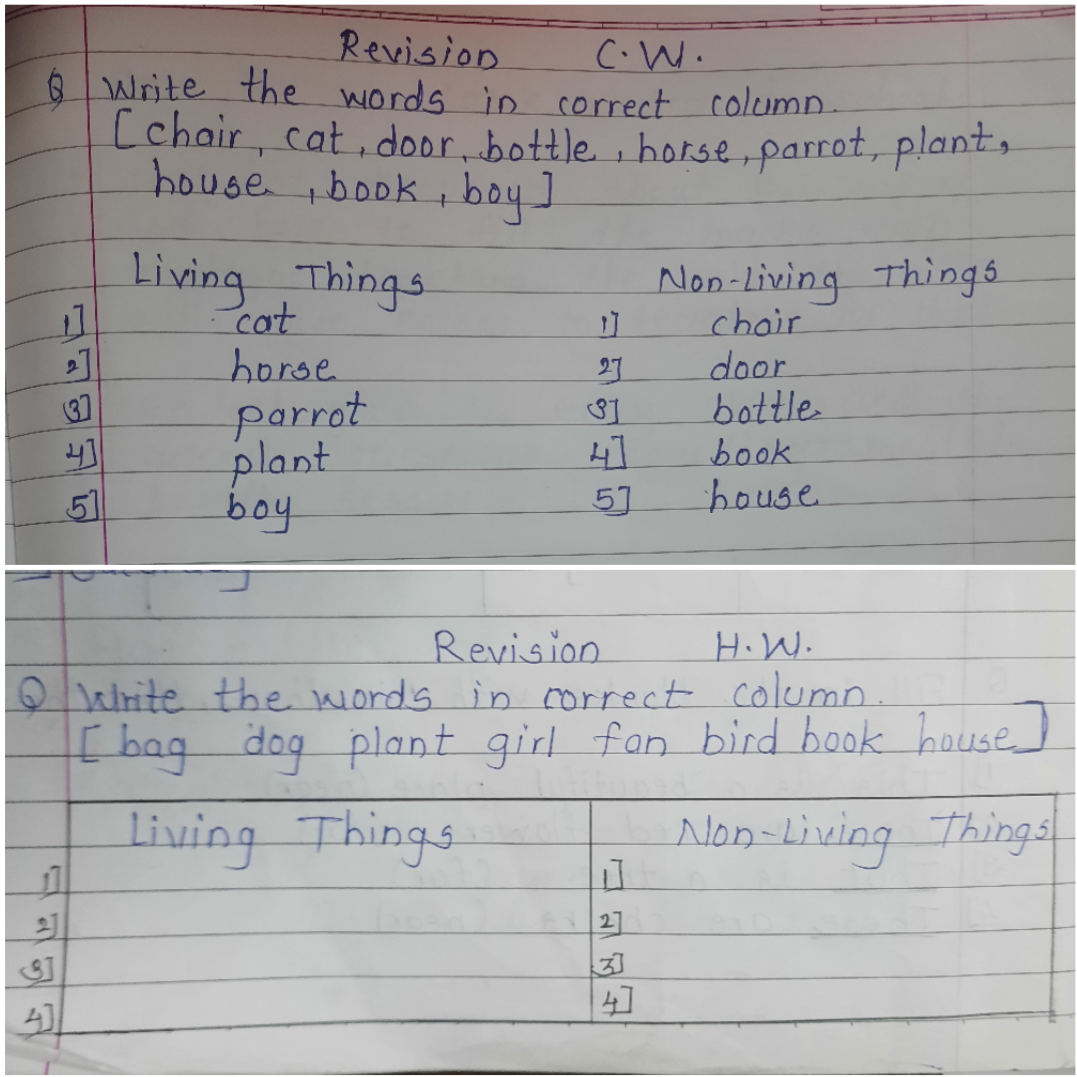 Revision C.W.
Q Write the words in correct column.
[chair, cat, door, bottle, horse, parrot, plant,
house, book, boy]
Living Things Non-Living Things
1] cat 1] chair
2] horse 2] door
3] parrot 3] bottle
4] plant 4] book
5] boy 5] house
Revision H.W.
Q Write the words in correct column.
[bag dog plant girl fan bird book house]
Living Things Non-Living Things
1] 1]
2] 2]
3] 3]
4] 4]